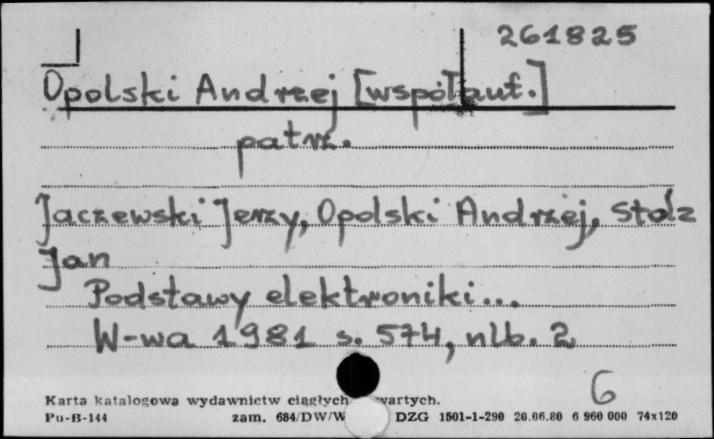 261825
Opolski Andrzej [współaut.]
patrz.
Jaczewski Jerzy, Opolski Andrzej, Stolz
Jan
Podstawy elektroniki...
W-wa 1981 s. 574, nlb. 2
6
Karta katalogowa wydawnictw ciągłych wartych.
Pu-B-144 zam. 684/DW/W DZG 1501-1-290 26.06.80 6 860 000 74x120